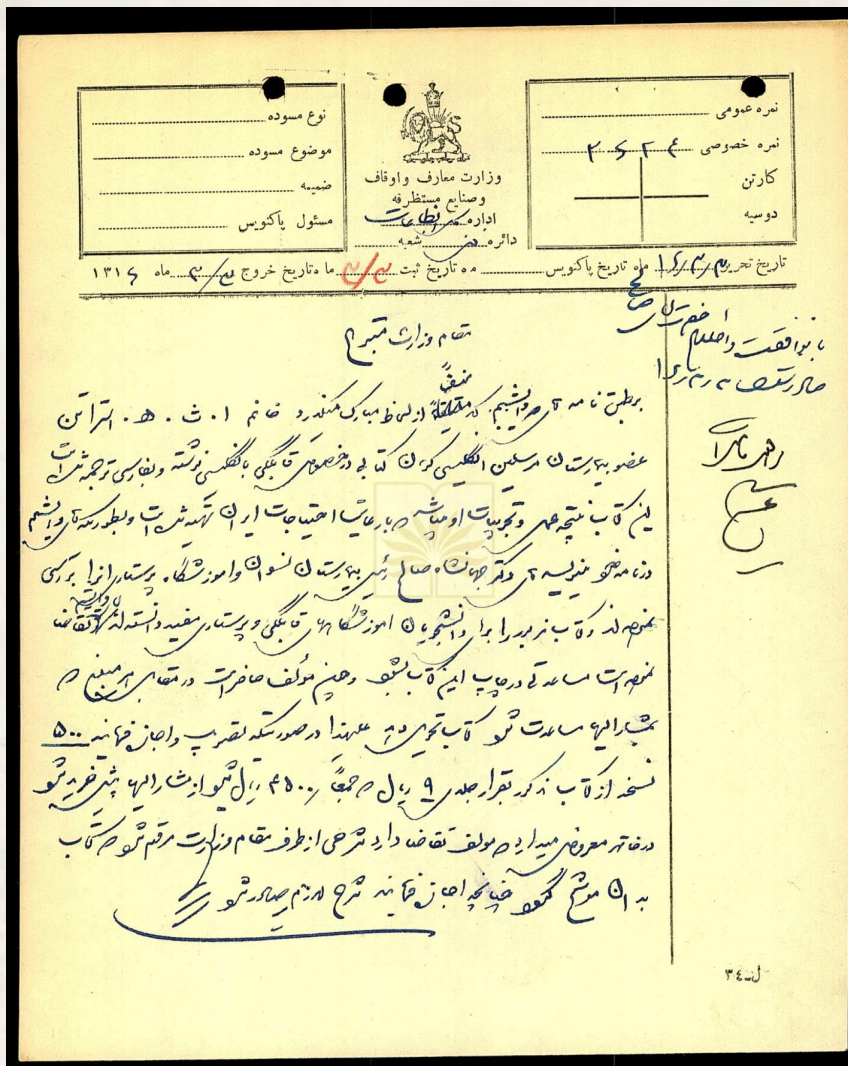 نمره عمومی
نمره خصوصی ۲۶۲۴
کارتن
دوسیه
وزارت معارف و اوقاف
وصنایع مستظرفه
اداره کل انطباعات
دائره فنی شعبه
نوع مسوده
موضوع مسوده
ضمیمه
مسئول پاکنویس
تاریخ تحریر ۱۶/۳/۳ ماه تاریخ پاکنویس مه تاریخ ثبت ۳/۳ ما ه تاریخ خروج ۳/۳ ماه ۱۳۱۶
مقام وزارت متبوع
برطبق نامه که از لحاظ مبارک میگذرد خانم ا. ث. ه. استراتن
عضو بیمارستان مرسلین انگلیسی کرمان کتابی در خصوص قابلگی بانگلیسی نوشته و بفارسی ترجمه شده است
این کتاب نتیجه عمل و تجربیات او میباشد که با رعایت احتیاجات ایران تهیه شده است و بطوریکه
در نامه خود مینویسد دکتر جهانشاه صالح رئیس بیمارستان نسوان و آموزشگاه پرستاری آنرا بررسی
نموده اند و کتاب نزبور را برای دانشجویان آموزشگاههای قابلگی و پرستاری مفید دانسته اند تقاضا
نموده است مساعدتی در چاپ این کتاب بشود و همین مؤلف حاضر است در مقابل هر مبلغی که
بمشارالیها مساعدت شود کتاب تحویل دهد علیهذا در صورتیکه تصویب و اجازه فرمایند ۵۰۰
نسخه از کتاب مذکور بقرار جلدی ۹ ریال که جمعاً ۴۵۰۰ ریال میشود از مشارالیها پیش خرید شود
در خاتمه معروض میدارد که مولف تقاضا دارد شرحی از طرف مقام وزارت مرقوم شود که کتاب
بدان موشح گردد چنانچه اجازه فرمایند شرح لازم صادر شود
با موافقت و اطلاع
صادر شود ۱۶/۳/۳
ل-۳٤